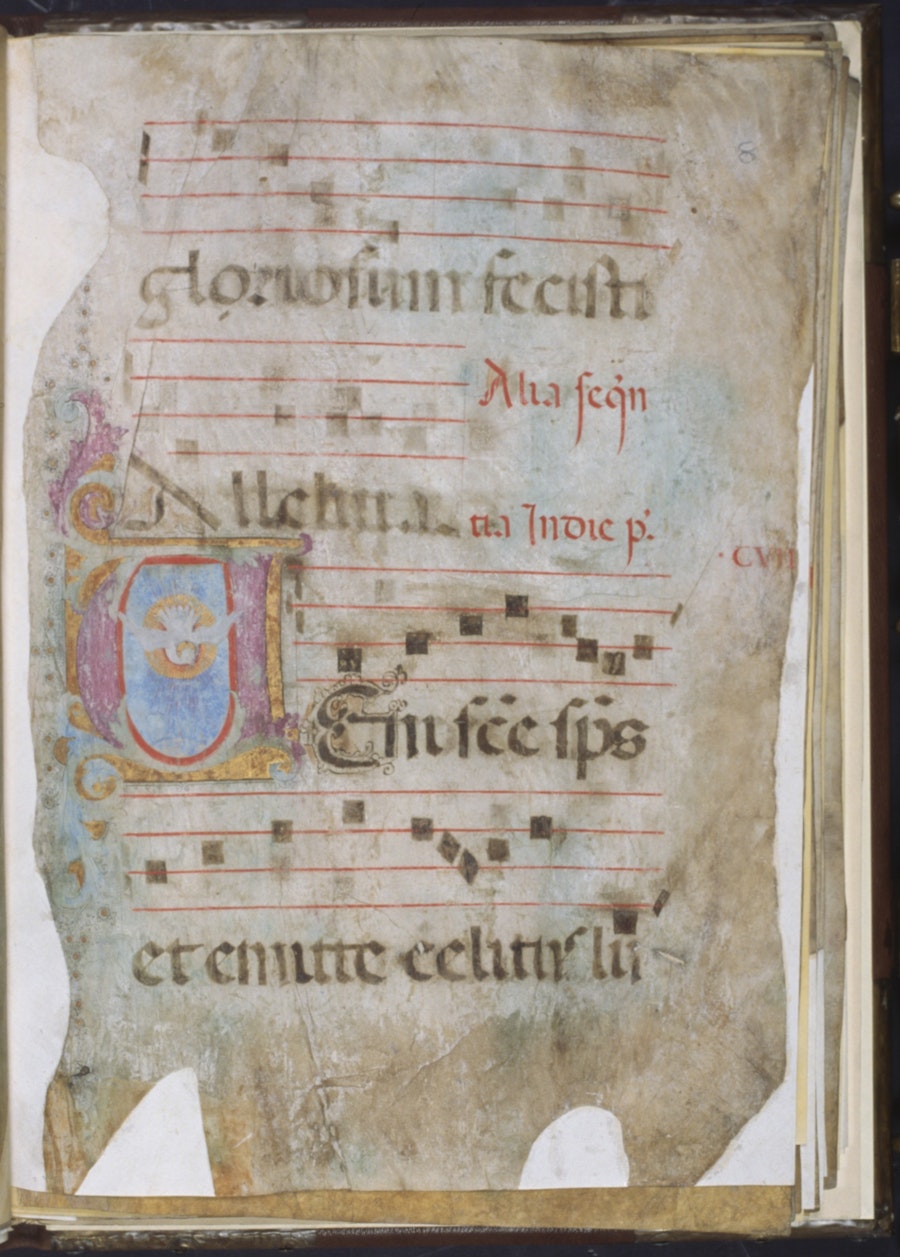 8
gloriosum fecisti
Alia seq̃n
Alleluia.
tia In die p̃.
CVII
Eni sc̃e sp̃s
et emitte celitus lu